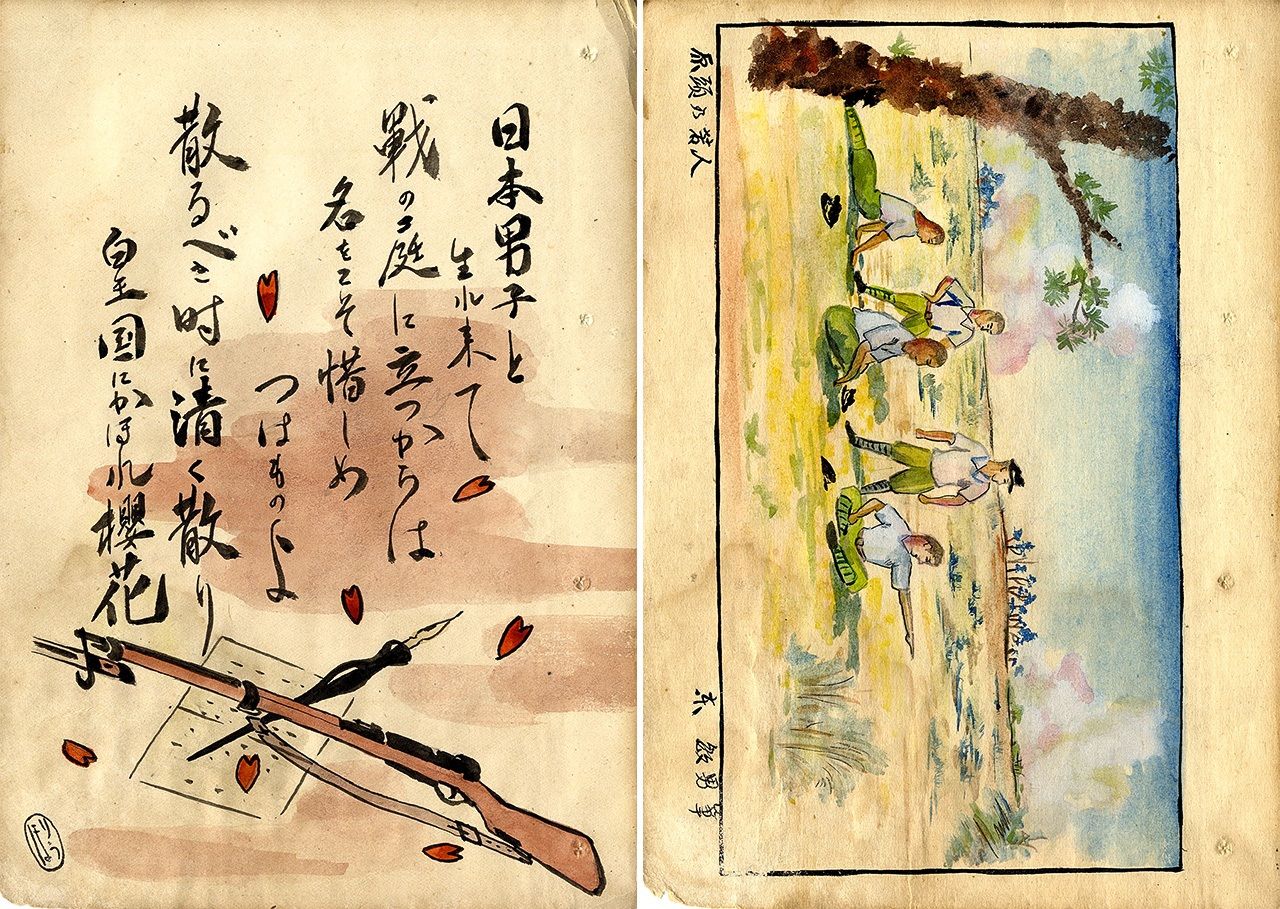 日本男子と
生れ来て
戰の庭に立つからは
名をこそ惜しめ
つはものよ
散るべき時に清く散り
皇国にかほれ櫻花
原頭乃若人
男筆